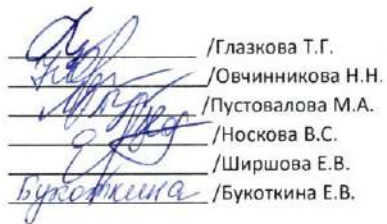 /Глазкова Т.Г.
/Овчинникова Н.Н.
/Пустовалова М.А.
/Носкова В.С.
/Ширшова Е.В.
Букоткина /Букоткина Е.В.